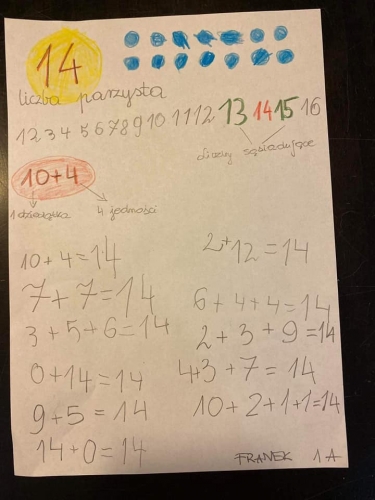 14
liczba parzysta
1 2 3 4 5 6 7 8 9 10 11 12 13 14 15 16
liczby sąsiadujące
10+4
1 dziesiątka 4 jedności
10 + 4 = 14
7 + 7 = 14
3 + 5 + 6 = 14
0 + 14 = 14
9 + 5 = 14
14 + 0 = 14
2 + 12 = 14
6 + 4 + 4 = 14
2 + 3 + 9 = 14
4 + 3 + 7 = 14
10 + 2 + 1 + 1 = 14
FRANEK 1A